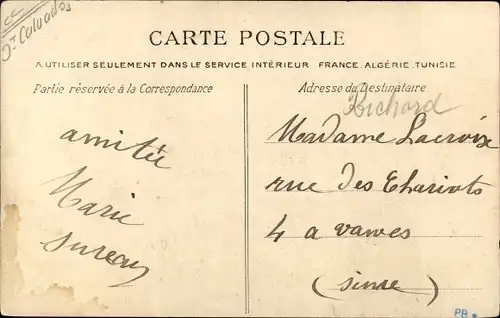 Dt Calvados
CARTE POSTALE
A UTILISER SEULEMENT DANS LE SERVICE INTÉRIEUR FRANCE, ALGÉRIE, TUNISIE
Partie réservée à la Correspondance
Adresse du Destinataire
Richard
amitée
Marie
Madame Lacroix
rue des Chariots
4 a vanves
(seine)
PB